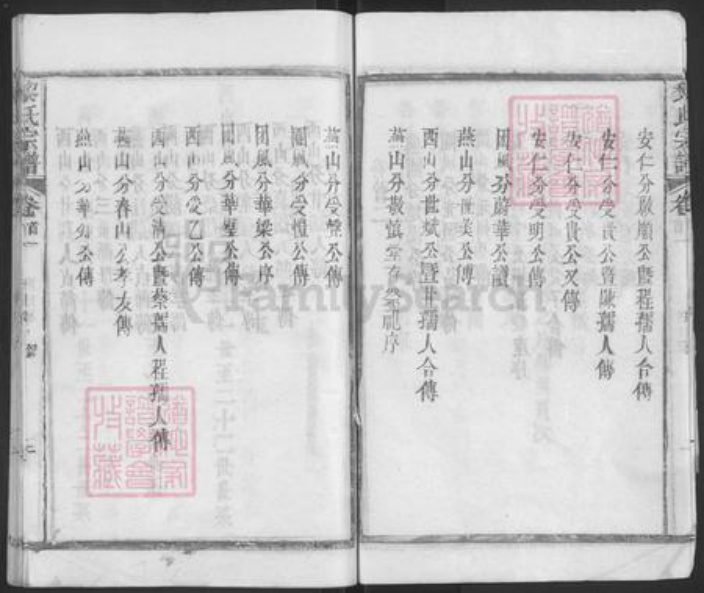 安仁分啟順公暨程孺人合傳
安仁分受貴公暨陳孺人傳
安仁分受貴公又傳
安仁分受明公傳
團風分蔚華公譜
燕山分世美公傳
西山分世斌公暨甘孺人合傳
燕山分敬慎堂存祭祀序
燕山分受盤公傳
團風分受禮公傳
團風分華梁公序
團風分華璧公傳
西山分受乙公傳
西山分受清公暨蔡孺人程孺人傳
燕山分春山公孝友傳
燕山分華公傳
黎氏宗譜
卷首一
FamilySearch